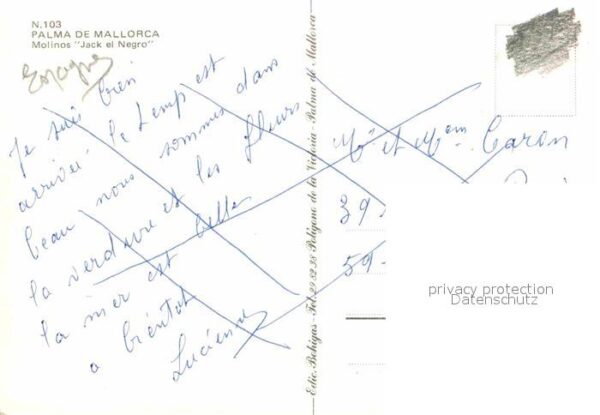 N.103
PALMA DE MALLORCA
Molinos "Jack el Negro"
Espagne
Je suis bien
arrivée. le temp est
beau nous sommes dans
la verdure et les fleurs
la mer est belle
a bientot
Lucienne
Edic. Bohigas - Tel. 29 82 38 Polígono de la Victoria - Palma de Mallorca
Mr et Mem Caron
39
59-
privacy protection
Datenschutz